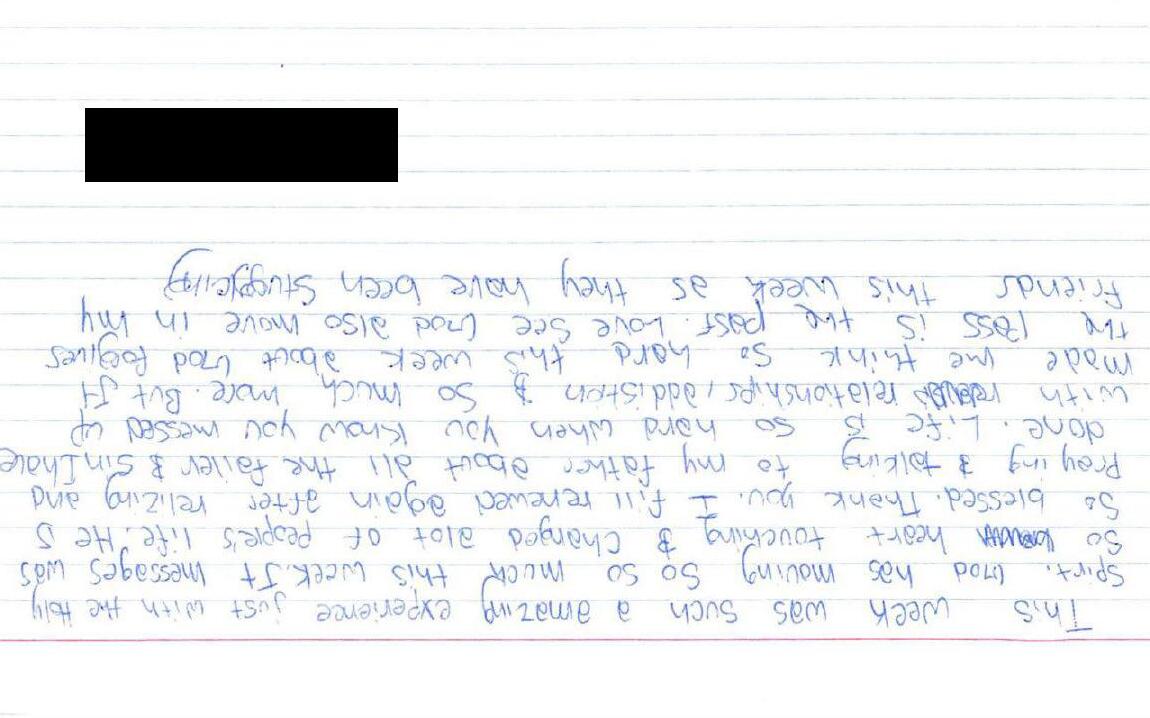 This week was such a amazing experience just with the Holy
Spirt. God has moving so so much this week. It messages was
So heart touching & changed alot of people's life. He is
So blessed. Thank you. I fill renewed again after relizing and
Praying & talking to my father about all the failer & sin I have
done. Life is so hard when you know you messed up
with relationships, addistion & so much more. But It
made me think so hard this week about God forgives
the pass is the past. Love see God also move in my
friends this week as they have been struggleing